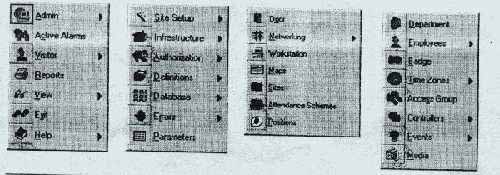 Admin
Active Alarms
Visitor
Reports
View
Exit
Help
Site Setup
Infrastructure
Authorization
Definitions
Database
Errors
Parameters
Door
Networking
Workstation
Maps
Sites
Attendance Schemes
Positions
Department
Employees
Badge
Time Zones
Access Group
Controllers
Events
Media